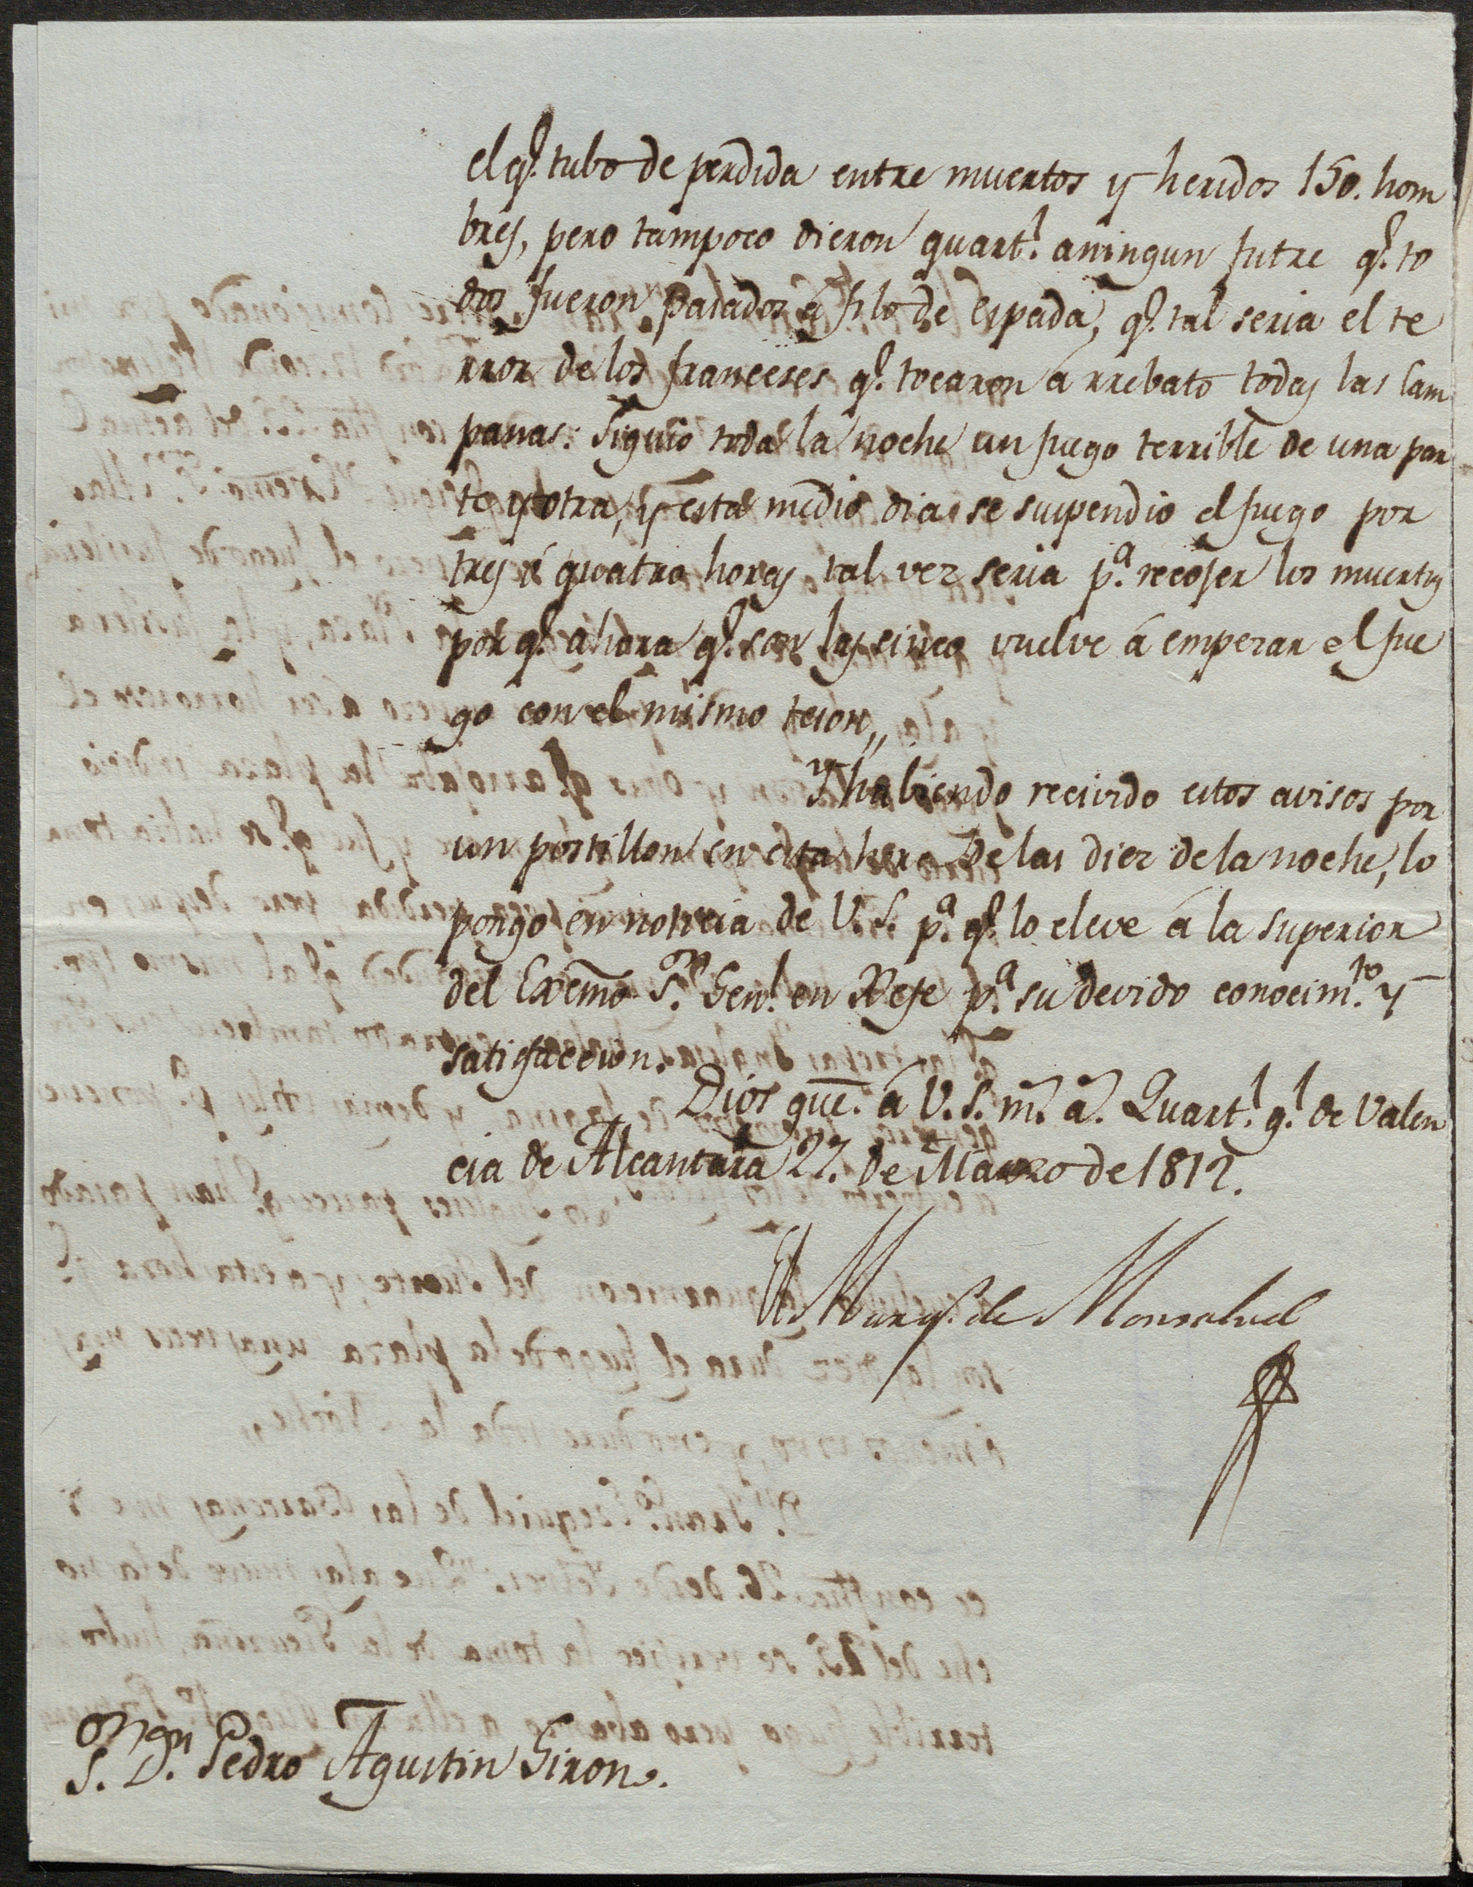 el q.^e tubo de perdida entre muertos y heridos 150. hom
bres, pero tampoco dieron quart.^l aningun futre q.^e to
dos fueron pasados á filo de espada, q.^e tal seria el te
rror de los franceses q.^e tocaron á rrebato todas las Cam
panas: Siguió toda la noche un fuego terrible de una par
te y otra, y esta medio dia se suspendio el fuego por
tres ó quatro horas tal vez seria p.^a recojer los muertos
por q.^e ahora q.^e son las sinco vuelve á empezar el fue
go con el mismo teson,,
Y habiendo recivido estos avisos por
un postillon en esta hora de las diez de la noche, lo
pongo en noticia de V. S. p.^a q.^e lo eleve á la superior
del Exemo S.^or Gen.^l en Xefe p.^a su devido conocim.^to y
satisfaccion.
Dios gue. á V. S. m.^s a.^s Quart.^l g.^l de Valen
cia de Alcantara 27. de Marzo de 1812.
El Marq.^s de Monsalud
S.^or D.^n Pedro Agustin Giron.